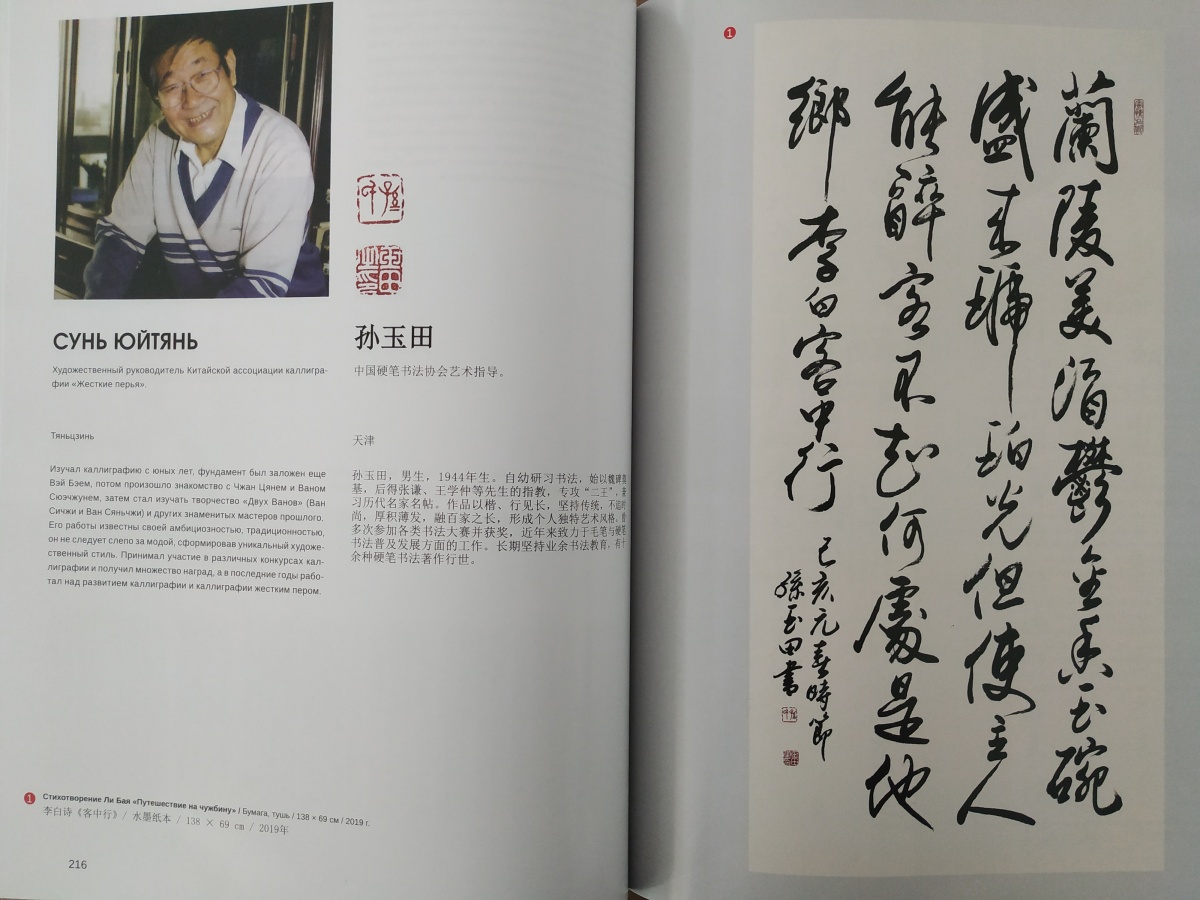 СУНЬ ЮЙТЯНЬ
Художественный руководитель Китайской ассоциации каллигра-
фии «Жесткие перья».
Тяньцзинь
Изучал каллиграфию с юных лет, фундамент был заложен еще
Вэй Бэем, потом произошло знакомство с Чжан Цянем и Ваном
Сюэчжунем, затем стал изучать творчество «Двух Ванов» (Ван
Сичжи и Ван Сяньчжи) и других знаменитых мастеров прошлого.
Его работы известны своей амбициозностью, традиционностью,
он не следует слепо за модой, сформировав уникальный художе-
ственный стиль. Принимал участие в различных конкурсах кал-
лиграфии и получил множество наград, а в последние годы рабо-
тал над развитием каллиграфии и каллиграфии жестким пером.
孙玉田
中国硬笔书法协会艺术指导。
天津
孙玉田，男生，1944年生。自幼研习书法，始以魏碑奠
基，后得张谦、王学仲等先生的指教，专攻“二王”，兼
习历代名家名帖。作品以楷、行见长，坚持传统，不追时
尚，厚积薄发，融百家之长，形成个人独特艺术风格。曾
多次参加各类书法大赛并获奖，近年来致力于毛笔与硬笔
书法普及发展方面的工作。长期坚持业余书法教育，有十
余种硬笔书法著作行世。
1 Стихотворение Ли Бая «Путешествие на чужбину» / Бумага, тушь / 138 × 69 см / 2019 г.
李白诗《客中行》/ 水墨纸本 / 138 × 69 cm / 2019年
216
1
蘭陵美酒鬱金香玉碗
盛来琥珀光但使主人
能醉客不知何處是他
鄉 李白客中行
己亥元春時節
孫玉田書